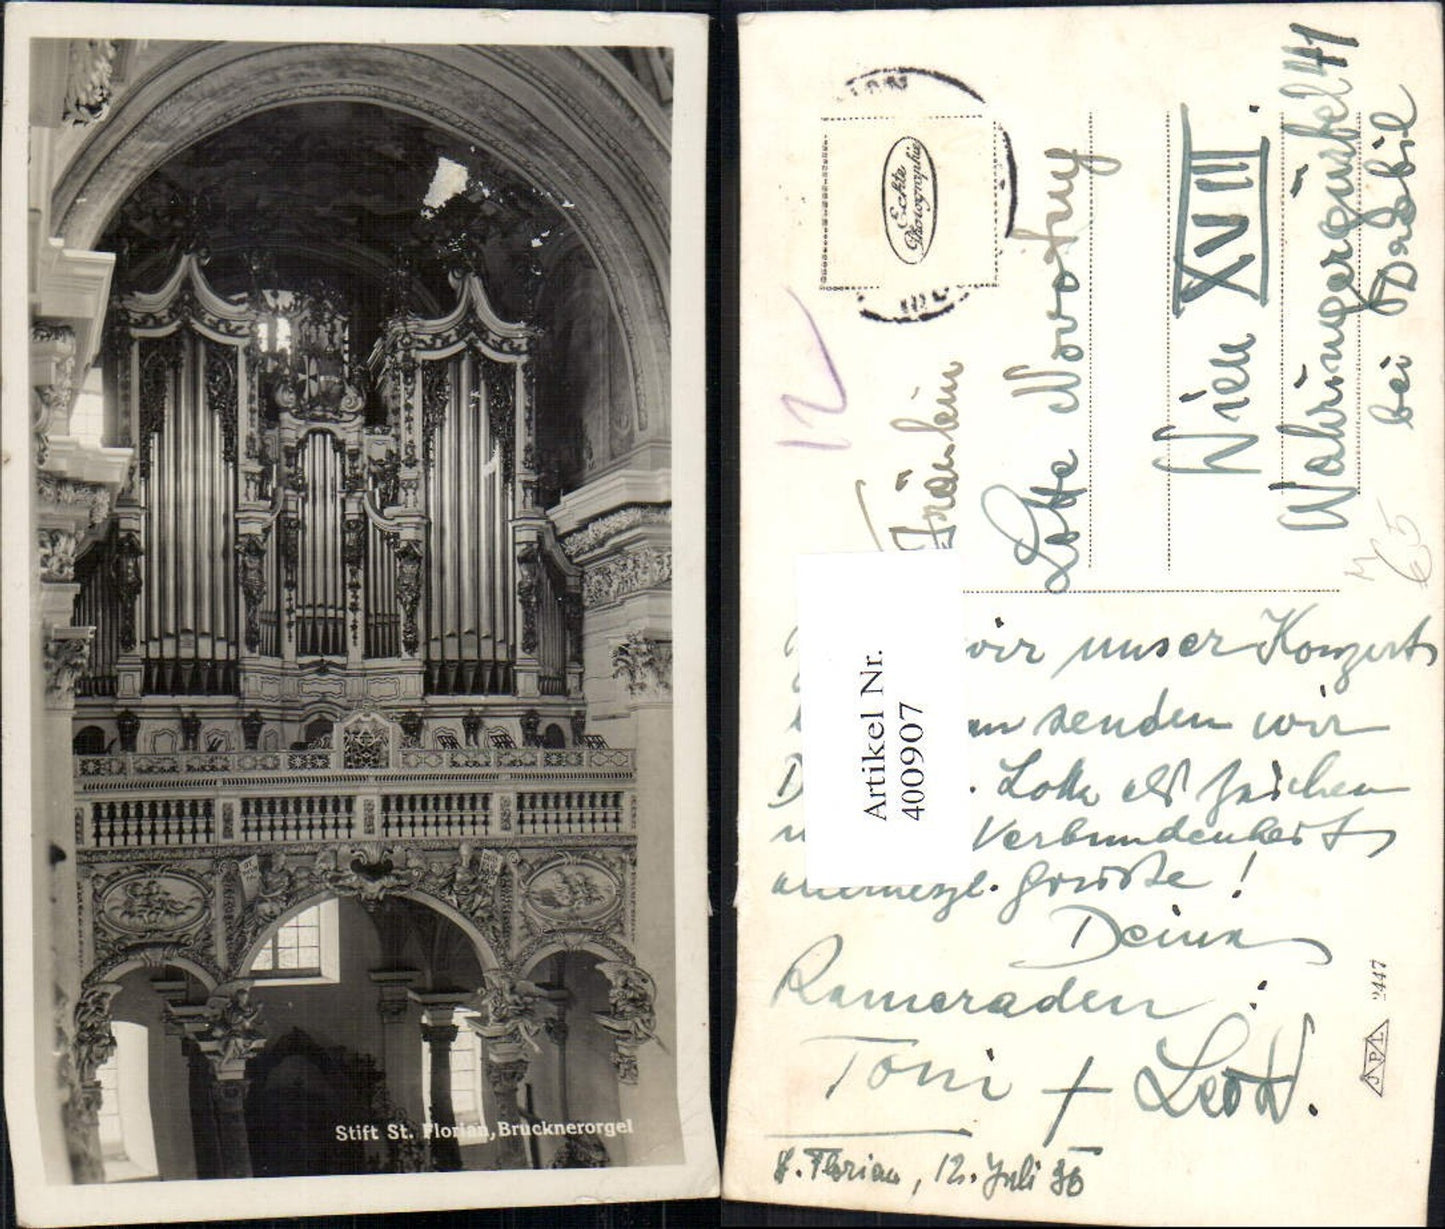 Stift St. Florian, Brucknerorgel
Echte
Photographie
12
Fräulein
Lotte Novotny
Wien XVIII.
Währingergürtel 41
bei Drabil
65
Artikel Nr.
400907
wir unser Konzert
senden wir
D . Lotte als Zeichen
Verbundenheit
allerherzl. Grüße!
Deine
Kameraden:
Toni + Leo H.
St. Florian, 12. Juli 36
2447